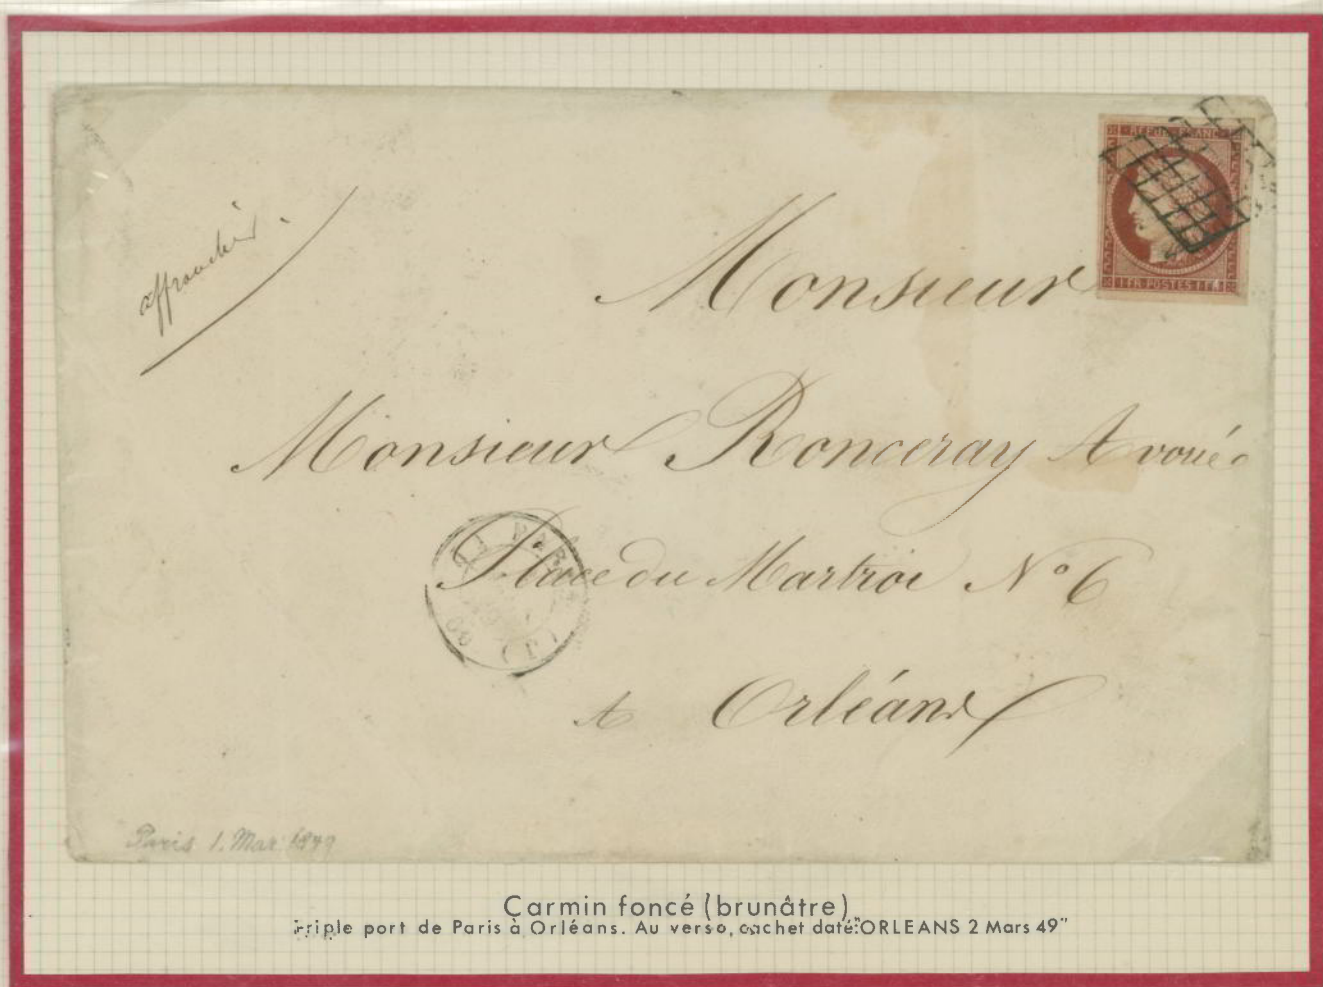 affranchie.
REPUB. FRANC.
1 FR. POSTES 1 FR.
Monsieur
Monsieur Ronceray Avoué
Place du Martroi N° 6
PARIS
60
à Orléans
Paris 1. Mar 1849
Carmin foncé (brunâtre)
Triple port de Paris à Orléans. Au verso, cachet daté: "ORLEANS 2 Mars 49"